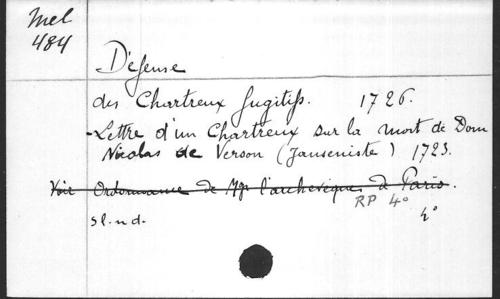 Mel
484
Défense
des Chartreux fugitifs. 1726.
- Lettre d'un Chartreux sur la mort de Dom
Nicolas de Verson (Janseniste) 1723.
Voir Ordonnance de Mgr l'archevêque de Paris.
RP 4°
sl.nd. 4°